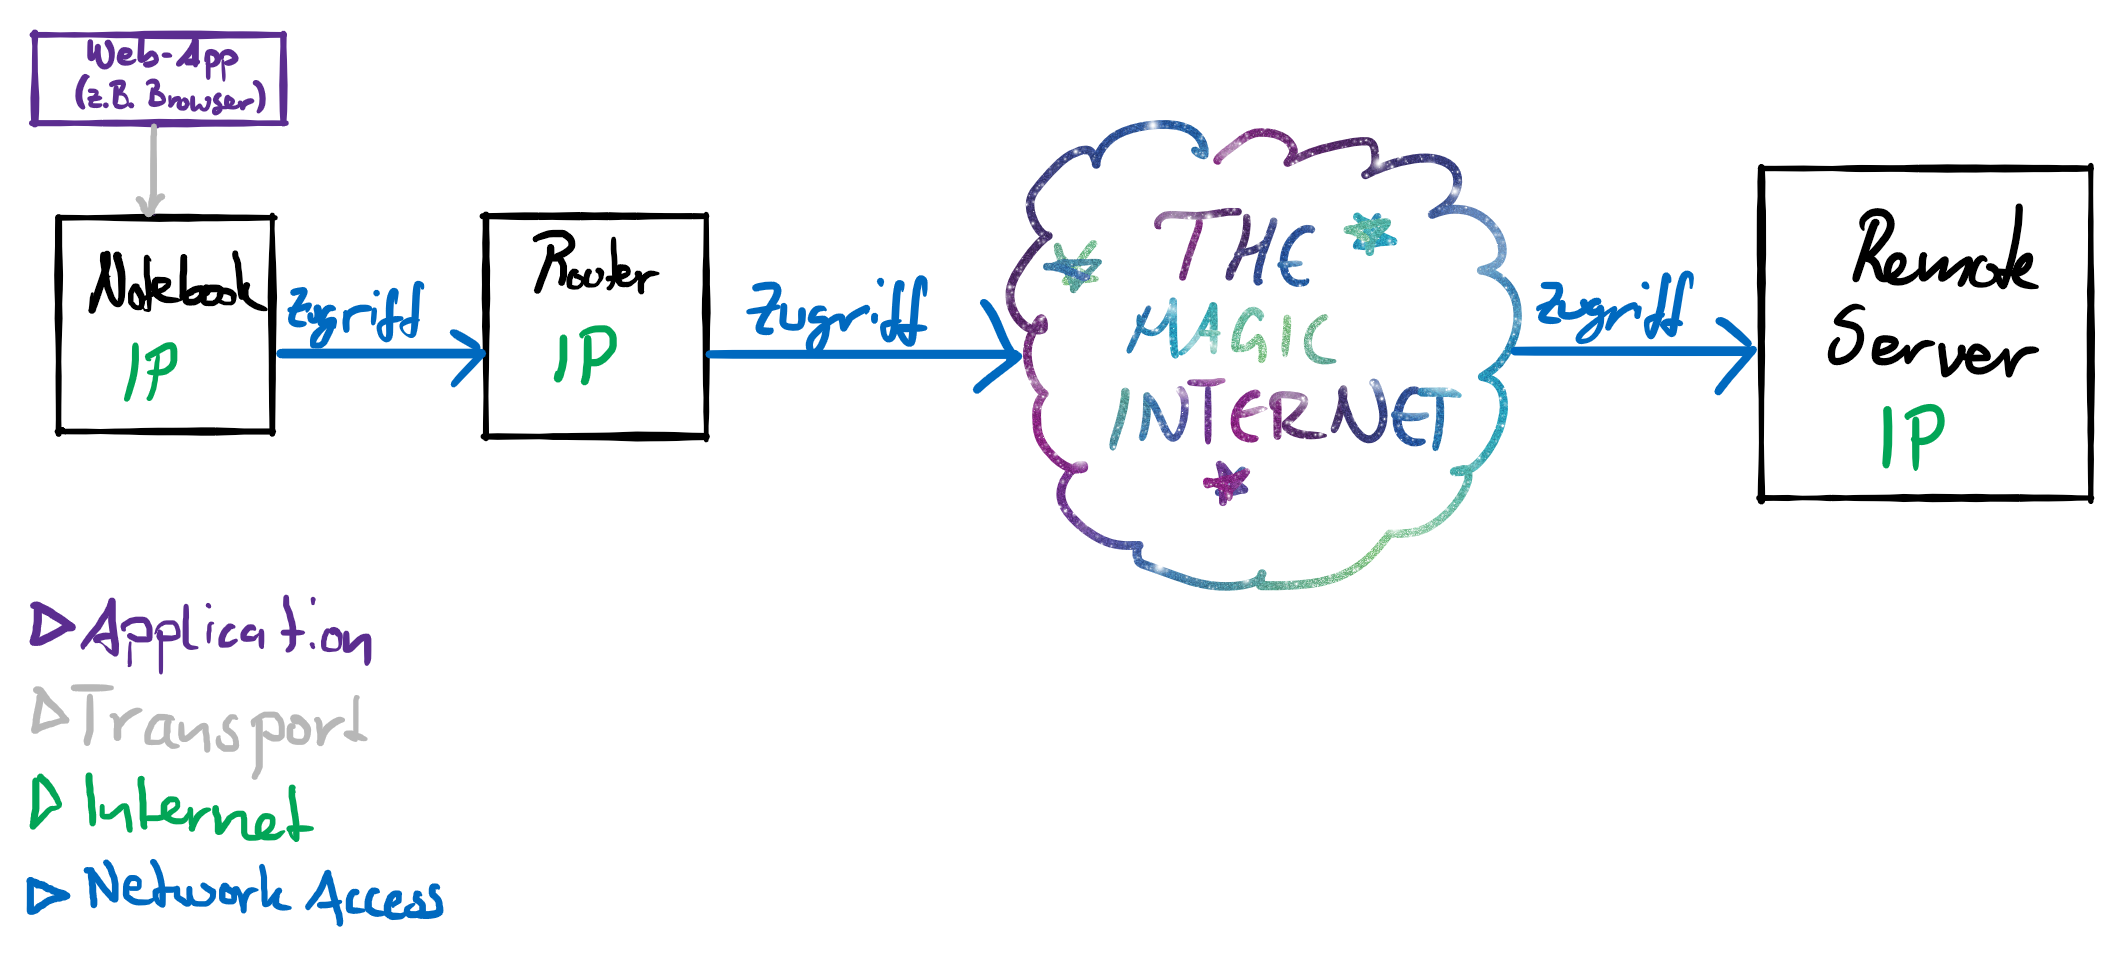 Web-App
(z.B. Browser)
Notebook
IP
Zugriff
Router
IP
Zugriff
THE
MAGIC
INTERNET
Zugriff
Remote
Server
IP
Application
Transport
Internet
Network Access